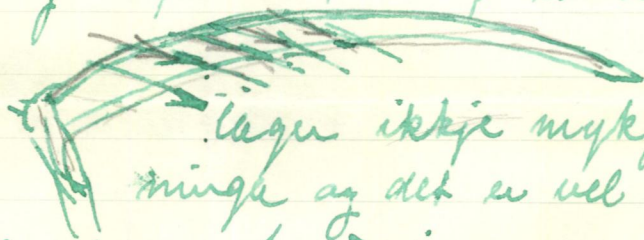 lager ikkje myk
ninga og det er vel